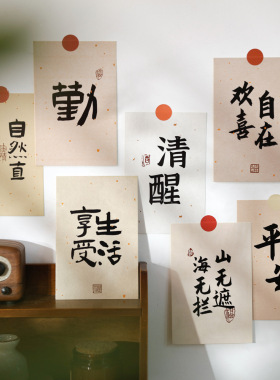 勤
自在
欢喜
自然直
清醒
享受
生活
山无遮
海无栏
平安